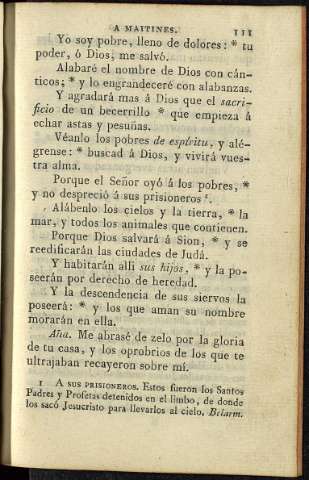 A MAITINES. 111
Yo soy pobre, lleno de dolores: * tu
poder, ó Dios, me salvó.
Alabaré el nombre de Dios con cán-
ticos; * y lo engrandeceré con alabanzas.
Y agradará mas á Dios que el sacri-
ficio de un becerrillo * que empieza á
echar astas y pesuñas.
Véanlo los pobres de espíritu, y alé-
grense: * buscad á Dios, y vivirá vues-
tra alma.
Porque el Señor oyó á los pobres, *
y no despreció á sus prisioneros 1.
Alábenlo los cielos y la tierra, * la
mar, y todos los animales que contienen.
Porque Dios salvará á Sion, * y se
reedificarán las ciudades de Judá.
Y habitarán allí sus hijos, * y la po-
seerán por derecho de heredad.
Y la descendencia de sus siervos la
poseerá: * y los que aman su nombre
morarán en ella.
Aña. Me abrasé de zelo por la gloria
de tu casa, y los oprobrios de los que te
ultrajaban recayeron sobre mí.
1 A SUS PRISIONEROS. Estos fueron los Santos
Padres y Profetas detenidos en el limbo, de donde
los sacó Jesucristo para llevarlos al cielo. Belarm.